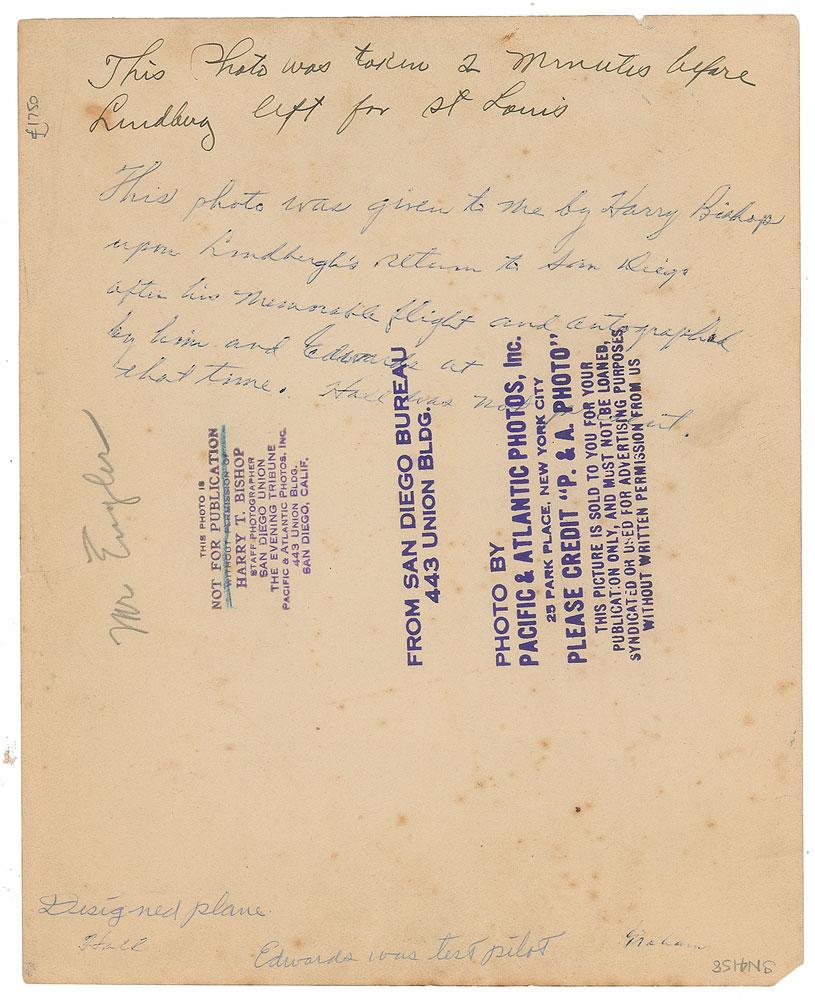 This Photo was taken 2 Minutes before
Lindberg left for St Louis
This photo was given to me by Harry Bishop
upon Lindbergh's return to San Diego
after his memorable flight and autographed
by him and Edwards at
that time. Hall was not present.
£1750
Mr Engler
THIS PHOTO IS
NOT FOR PUBLICATION
WITHOUT PERMISSION OF
HARRY T. BISHOP
STAFF PHOTOGRAPHER
SAN DIEGO UNION
THE EVENING TRIBUNE
PACIFIC & ATLANTIC PHOTOS, INC.
443 UNION BLDG.
SAN DIEGO, CALIF.
FROM SAN DIEGO BUREAU
443 UNION BLDG.
PHOTO BY
PACIFIC & ATLANTIC PHOTOS, Inc.
25 PARK PLACE, NEW YORK CITY
PLEASE CREDIT "P. & A. PHOTO"
THIS PICTURE IS SOLD TO YOU FOR YOUR
PUBLICATION ONLY, AND MUST NOT BE LOANED,
SYNDICATED OR USED FOR ADVERTISING PURPOSES
WITHOUT WRITTEN PERMISSION FROM US
Designed plane
Hall
Edwards was test pilot
Graham
SN4158